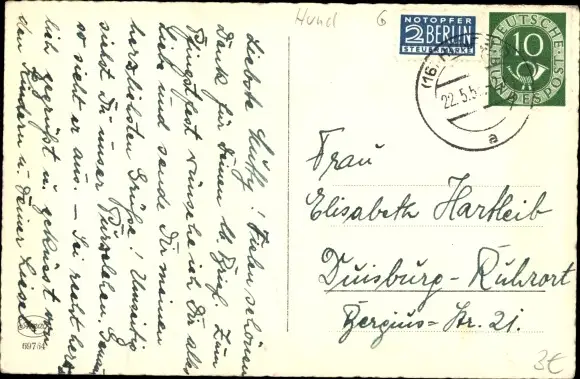 Hund
6
NOTOPFER
2 BERLIN
STEUERMARKE
DEUTSCHE BUNDESPOST
10
(16)
22.5.5
a
Liebste Mutty! Vielen schönen
Dank für Deinen lb. Brief. Zum
Pfingstfest wünsche ich Dir alles
Liebe und sende Dir meinen
herzlichsten Grüße! Umseitig
siehst Du unser Purzelchen. Genau
so sieht er aus. – Sei recht herz-
lich gegrüßt u. geküsst von
den Kindern u. Deiner Liesel
Frau
Elisabeth Hartleib
Duisburg-Ruhrort
Bergius-Str. 21.
69764
3€